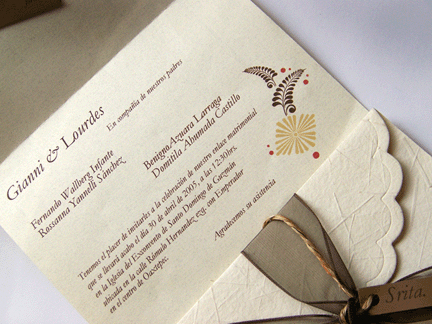 Gianni & Lourdes
En compañía de nuestros padres
Fernando Wallberg Infante
Rossanna Yannelli Sánchez
Benigno Azuara Larraga
Domitila Ahumada Castillo
Tenemos el placer de invitarles a la celebración de nuestro enlace matrimonial
que se llevará acabo el día 30 de abril de 2005, a las 12:30hrs.
en la Iglesia del Exconvento de Santo Domingo de Guzmán
ubicada en la calle Rómulo Hernandez esq. con Emperador
en el centro de Oaxtepec.
Agradecemos su asistencia
Srita.